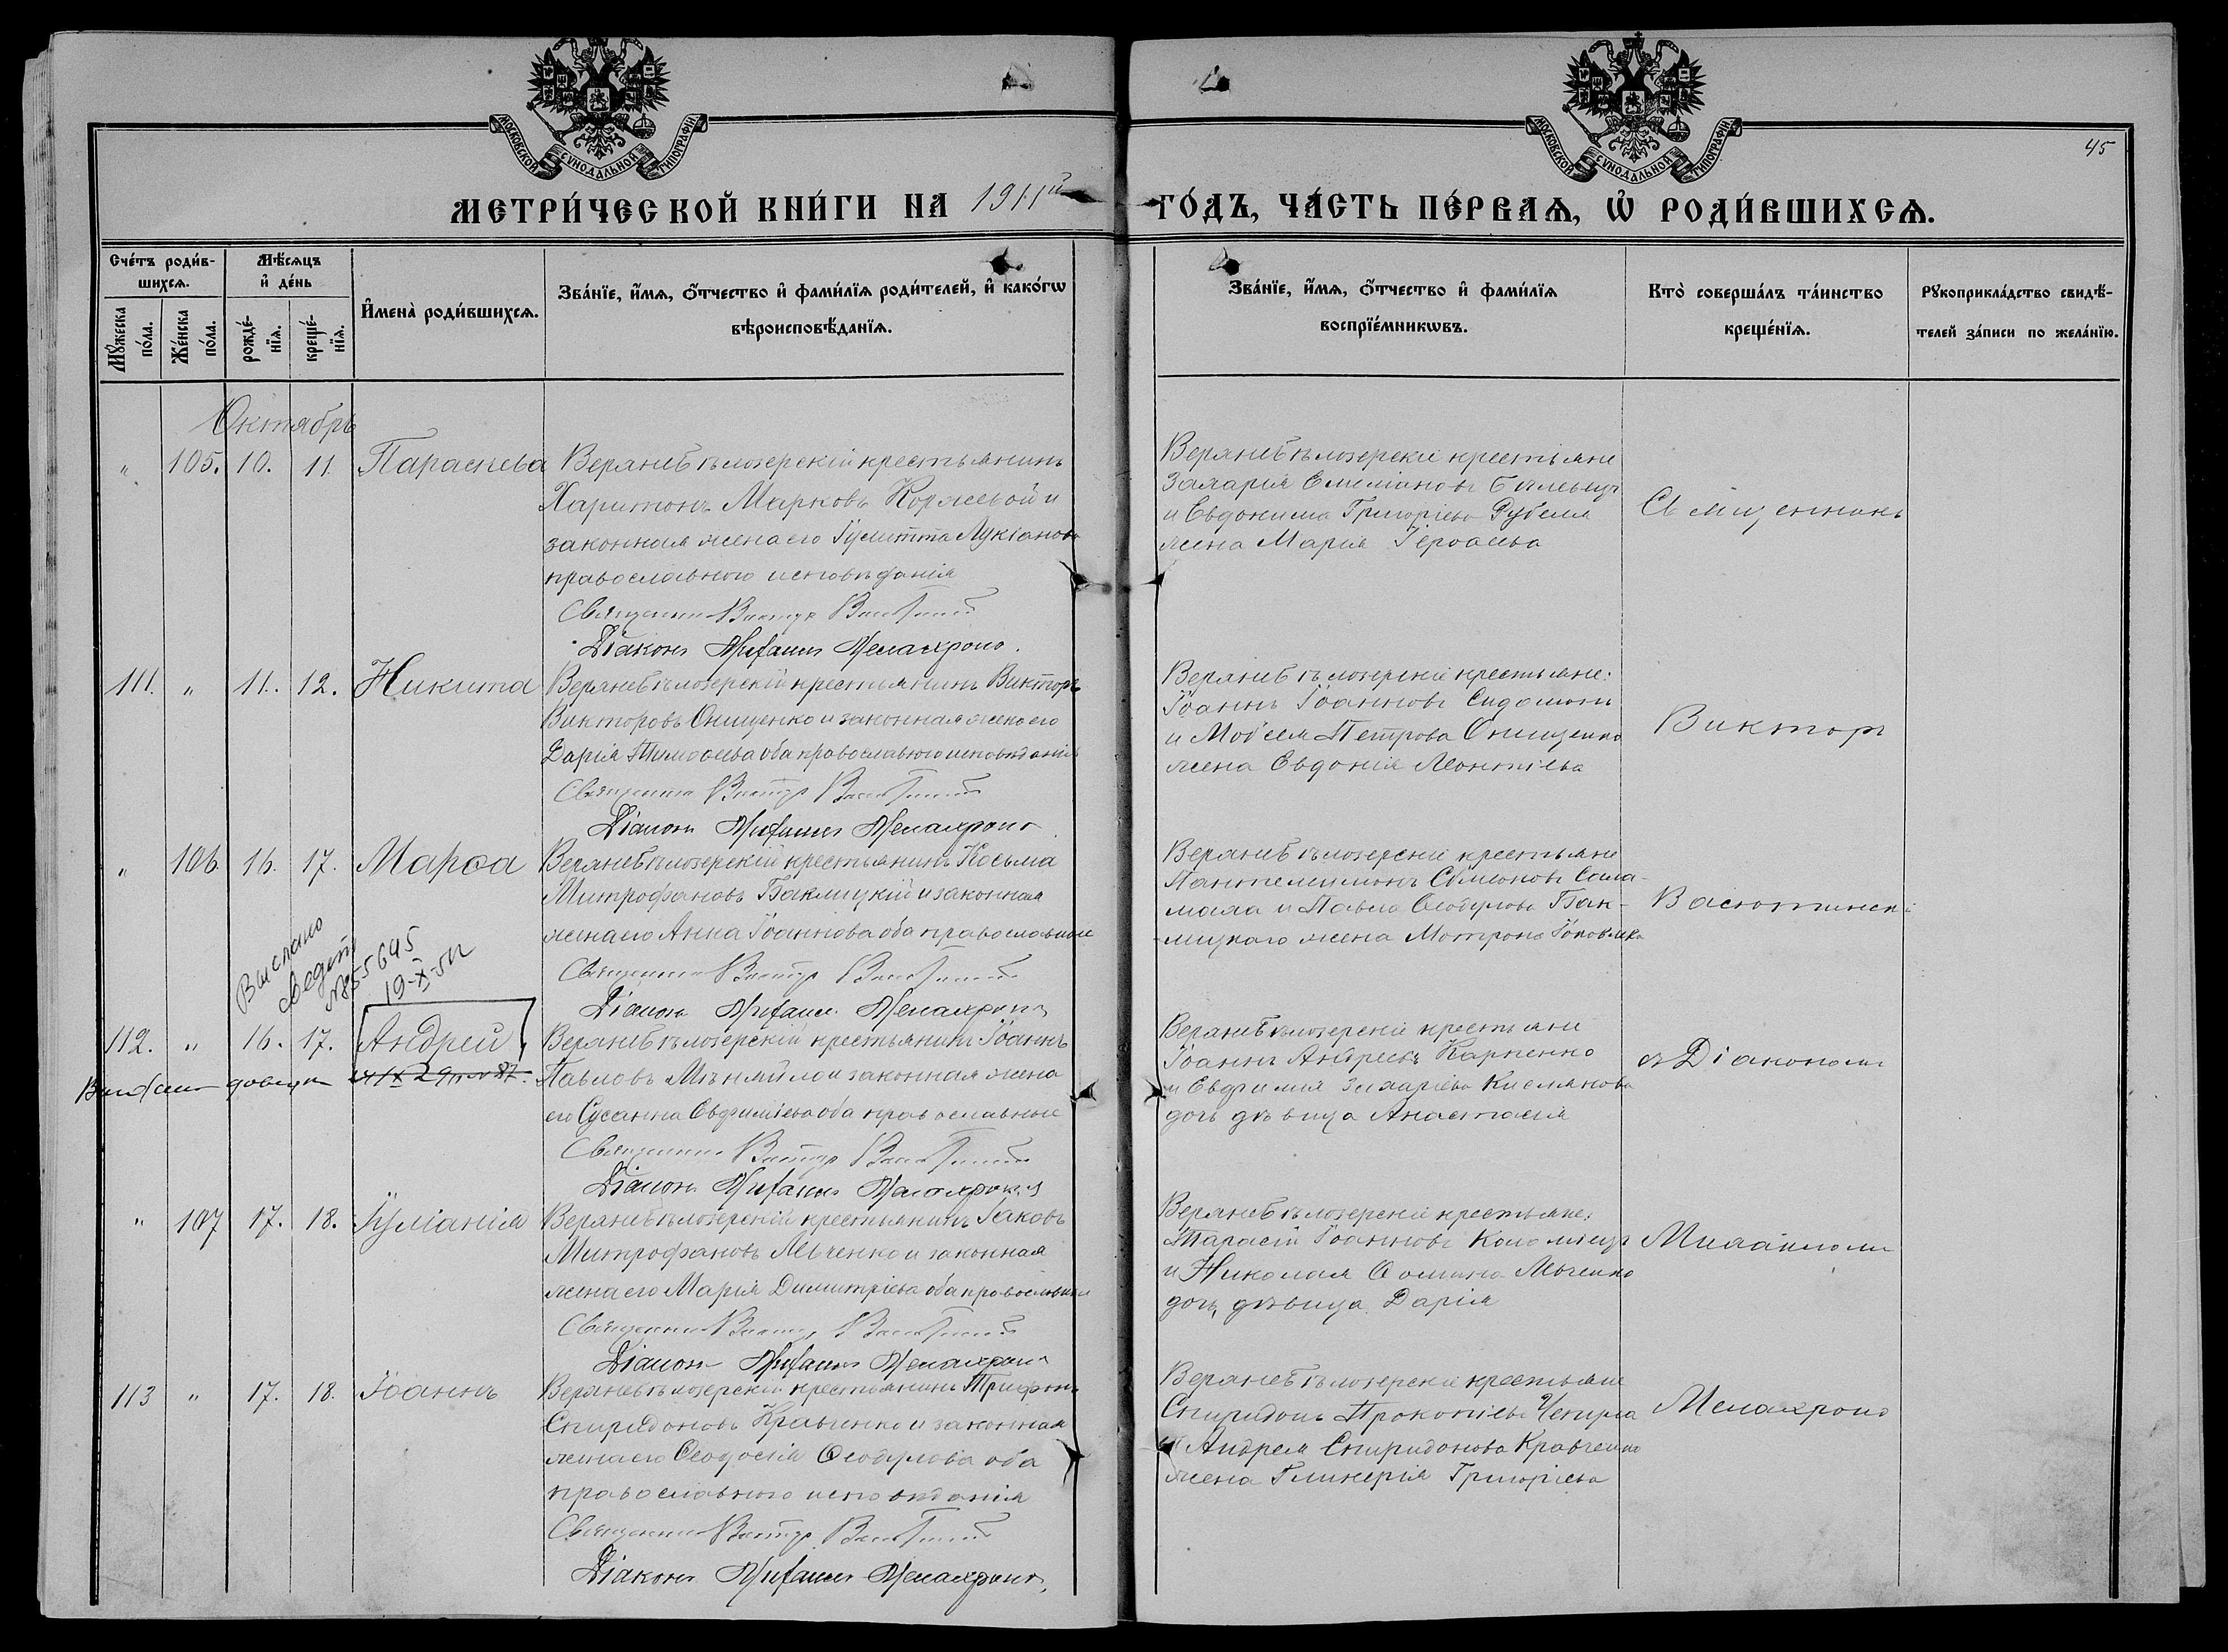 МОСКОВСКОЙ СѴНОДАЛЬНОЙ ТИПОГРАФІИ
МОСКОВСКОЙ СѴНОДАЛЬНОЙ ТИПОГРАФІИ
45
МЕТРИ́ЧЕСКОЙ КНИ́ГИ НА 1911й
ГО́ДЪ, ЧА́СТЬ ПЕ́РВАѦ, Ѡ҆ РОДИ́ВШИХСѦ.
Сче́тъ роди́в-
шихсѧ.
Мꙋ́жеска по́ла.
Же́нска по́ла.
Мѣ́сѧцъ
и҆ де́нь
рожде́-нїѧ.
креще́-нїѧ.
И҆мена̀ роди́вшихсѧ.
Зва́нїе, и҆́мѧ, ѻ҆́тчество и҆ фами́лїѧ роди́телей, и҆ како́гѡ
вѣроисповѣ́данїѧ.
Зва́нїе, и҆́мѧ, ѻ҆́тчество и҆ фами́лїѧ
воспрїе́мникѡвъ.
Кто̀ соверша́лъ та́инство
креще́нїѧ.
Рꙋкоприкла́дство свидѣ́-
телей за́писи по жела́нїю.
Октябрь
" 105. 10. 11. Параскева
Верхнебѣлозерскій крестьянинъ
Харитонъ Марковъ
законная жена его Іулитта Лукіанова
православного исповѣданія
Священник Виктор
Діаконъ Мелахроно
Верхнебѣлозерскіе крестьяне
Захарія
и Евдокима Григоріева Рубеля
жена Марія
Священникъ
111. " 11. 12. Никита
Верхнебѣлозерскій крестьянинъ Викторъ
Викторовъ Онищенко и законная жена его
Дарія Тимоѳеева оба православного исповѣданія
Священник Виктор
Діаконъ Мелахроно
Верхнебѣлозерскіе крестьяне:
Іоаннъ Іоанновъ
и Моѵсея Петрова Онищенко
жена Евдокія Леонтіева
Виктор
" 106. 16. 17. Марѳа
Верхнебѣлозерскій крестьянинъ Косьма
Митрофановъ Баклицкій и законная
жена его Анна Іоаннова оба православные
Священник Виктор
Діаконъ Мелахроно
Верхнебѣлозерскіе крестьяне
Пантелеимонъ Сѵмеоновъ Сала-
маха и Павла Ѳеодулова Бак-
лицкаго жена Мотрона Іаковлева
Васютинскі
Выслано
свидет
№855645
19-X-51
112. " 16. 17. Андрей
Верхнебѣлозерскій крестьянинъ Іоаннъ
Павловъ и законная жена
его Сусанна Евфиміева оба православные
Священник Виктор
Діаконъ Мелахроно
Верхнебѣлозерскіе крестьяне
Іоаннъ Андреевъ Карпенко
и Евфимия Захаріева Кислякова
дочь дѣвица Анастасія
съ Діакономъ
" 107 17. 18. Іуліанія
Верхнебѣлозерскій крестьянинъ Іаковъ
Митрофановъ Левченко и законная
жена его Марія Димитріева оба православные
Священник Виктор
Діаконъ Мелахроно
Верхнебѣлозерскіе крестьяне:
Тарасій Іоанновъ Коломіецъ
и Николая Ѳомина Левченко
дочь дѣвица Дарія
Михаиломъ
113 " 17. 18. Іоаннъ
Верхнебѣлозерскій крестьянинъ Трифонъ
Спиридоновъ Кравченко и законная
жена его Ѳеодосія Ѳеодулова оба
православного исповѣданія
Священник Виктор
Діаконъ Мелахроно
Верхнебѣлозерскіе крестьяне
Спиридонъ Прокопіевъ
и Андрея Спиридонова Кравченко
жена Гликерія Григоріева
Мелахроно